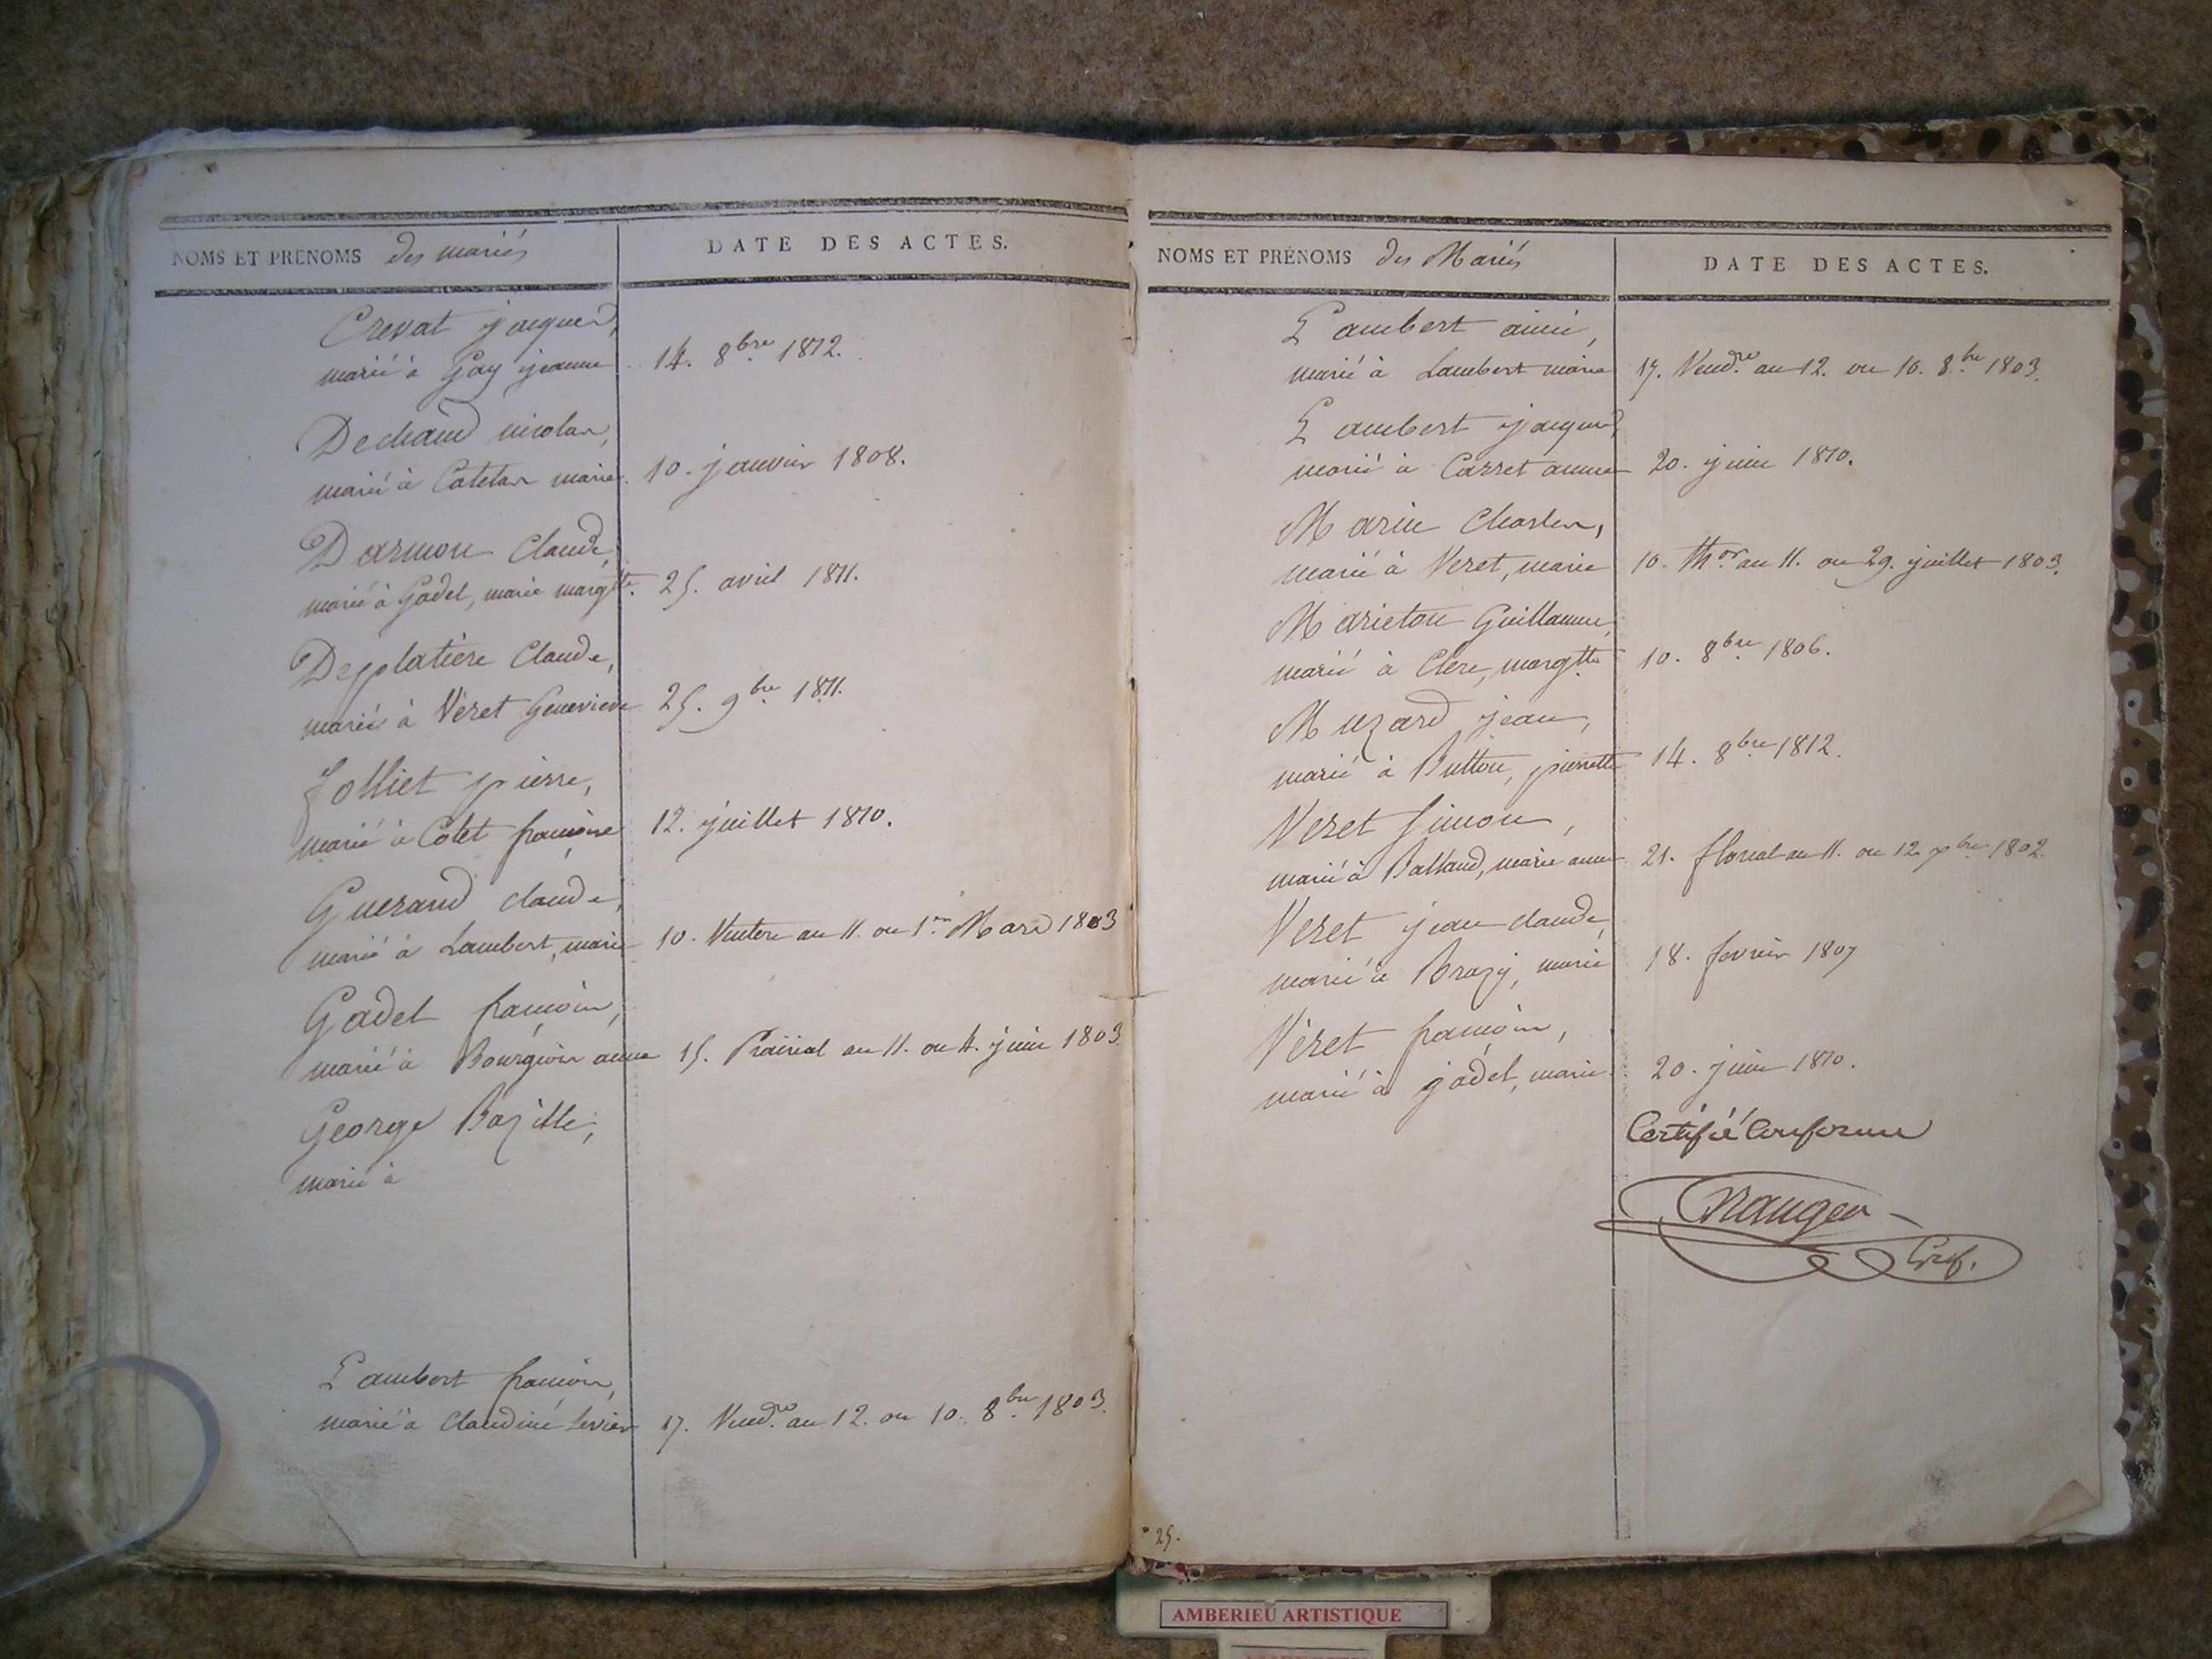 NOMS ET PRENOMS des mariés
DATE DES ACTES.
Crevat jaques,
marié à Gay jeanne 14. 8bre 1812.
Dechaud nicolas,
marié à Catelan marie. 10. janvier 1808.
Darmon Claude,
marié à Gadel, marie margtte. 25. avril 1811.
Desplatière Claude,
marié à Véret Genevieve 25. 9bre 1811.
Jolliet pierre,
marié à Colet françoise 12. juillet 1810.
Guerand claude,
marié à Lambert, marie 10. Ventose an 11. ou 1er Mars 1803
Gadel françois,
marié à Bourgeois anne 15. Prairial an 11. ou 4. juin 1803.
George Bazille,
marié à
Lambert françois,
marié à Claudine 17. Vendre an 12. ou 10. 8bre 1803.
NOMS ET PRÉNOMS des Mariés
DATE DES ACTES.
Lambert aimé,
marié à Lambert marie 17. Vendre an 12. ou 10. 8bre 1803.
Lambert jaques,
marié à Carret anne 20. juin 1810.
Marin Charles,
marié à Veret, marie 10. Thor an 11. ou 29. juillet 1803.
Marieton Guillaume,
marié à Clerc, margtte 10. 8bre 1806.
Muzard jean,
marié à Button, pierrette 14. 8bre 1812.
Veret Simon,
marié à Balland, marie anne 21. floreal an 11. ou 12. xbre 1802.
Veret jean claude,
marié à Brazy, marie 18. fevrier 1807
Véret françois,
marié à jadel, marie. 20. juin 1810.
Certifié Conforme
Gref.
25.
AMBERIEU ARTISTIQUE